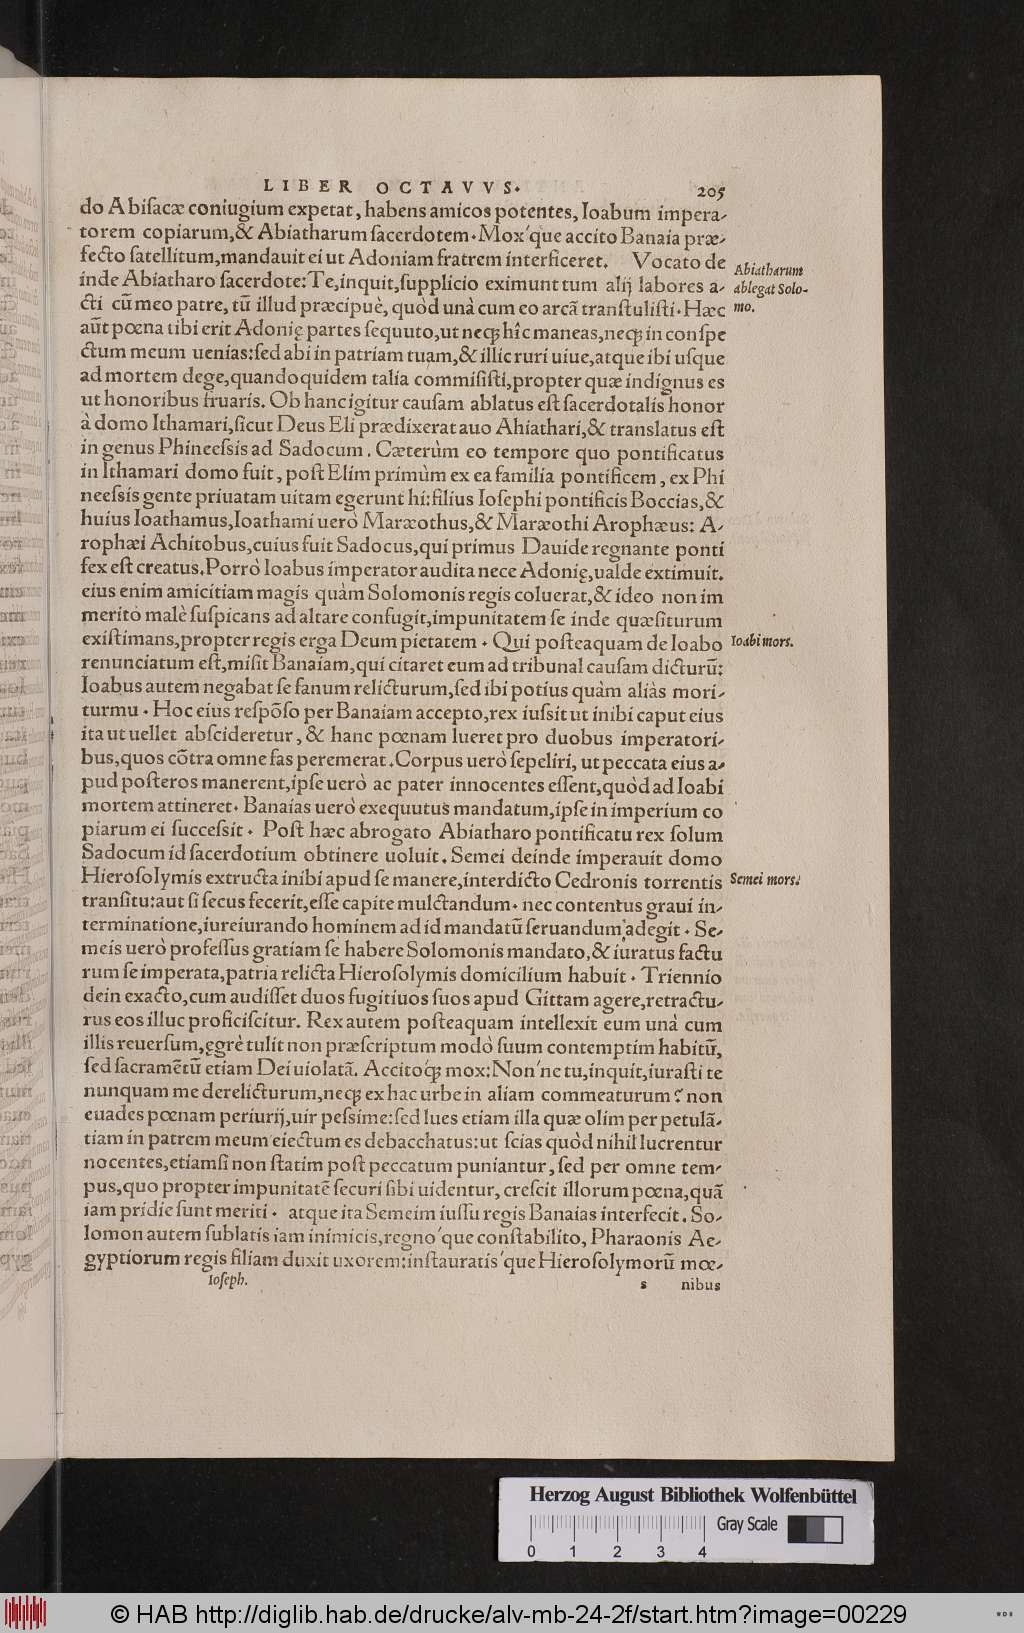 LIBER OCTAVVS.
205
do Abiſacæ coniugium expetat, habens amicos potentes, Ioabum impera-
torem copiarum,& Abiatharum ſacerdotem. Mox'que accito Banaia præ-
fecto ſatellitum,mandauit ei ut Adoniam fratrem interficeret. Vocato de
inde Abiatharo ſacerdote: Te,inquit,ſupplicio eximunt tum alij labores a-
cti cū meo patre, tū illud præcipuè, quòd unà cum eo arcã tranſtuliſti. Hæc
aūt pœna tibi erit Adonię partes ſequuto,ut neq; hîc maneas,neq; in conſpe
ctum meum uenias:ſed abi in patriam tuam,& illic ruri uiue,atque ibi uſque
ad mortem dege,quandoquidem talia commiſiſti,propter quæ indignus es
ut honoribus fruaris. Ob hanc igitur cauſam ablatus eſt ſacerdotalis honor
à domo Ithamari,ſicut Deus Eli prædixerat auo Ahiathari,& translatus eſt
in genus Phineeſsis ad Sadocum. Cæterùm eo tempore quo pontificatus
in Ithamari domo fuit, poſt Elim primùm ex ea familia pontificem, ex Phi
neeſsis gente priuatam uitam egerunt hi: filius Ioſephi pontificis Boccias,&
huius Ioathamus,Ioathami uerò Maræothus,& Maræothi Arophæus: A-
rophæi Achitobus,cuius fuit Sadocus,qui primus Dauide regnante ponti
fex eſt creatus. Porrò Ioabus imperator audita nece Adonię,ualde extimuit.
eius enim amicitiam magis quàm Solomonis regis coluerat,& ideo non im
meritò malè ſuſpicans ad altare confugit,impunitatem ſe inde quæſiturum
exiſtimans,propter regis erga Deum pietatem. Qui poſteaquam de Ioabo
renunciatum eſt,miſit Banaiam,qui citaret eum ad tribunal cauſam dicturū:
Ioabus autem negabat ſe fanum relicturum,ſed ibi potius quàm aliàs mori-
turmu. Hoc eius reſpōſo per Banaiam accepto,rex iuſsit ut inibi caput eius
ita ut uellet abſcideretur, & hanc pœnam lueret pro duobus imperatori-
bus,quos cōtra omne fas peremerat. Corpus uerò ſepeliri, ut peccata eius a-
pud poſteros manerent,ipſe uerò ac pater innocentes eſſent,quòd ad Ioabi
mortem attineret. Banaias uerò exequutus mandatum,ipſe in imperium co
piarum ei ſucceſsit. Poſt hæc abrogato Abiatharo pontificatu rex ſolum
Sadocum id ſacerdotium obtinere uoluit. Semei deinde imperauit domo
Hieroſolymis extructa inibi apud ſe manere,interdicto Cedronis torrentis
tranſitu:aut ſi ſecus fecerit,eſſe capite mulctandum. nec contentus graui in-
terminatione,iureiurando hominem ad id mandatū ſeruandum adegit. Se-
meis uerò profeſſus gratiam ſe habere Solomonis mandato,& iuratus factu
rum ſe imperata,patria relicta Hieroſolymis domicilium habuit. Triennio
dein exacto,cum audiſſet duos fugitiuos ſuos apud Gittam agere,retractu-
rus eos illuc proficiſcitur. Rex autem poſteaquam intellexit eum unà cum
illis reuerſum,ęgrè tulit non præſcriptum modò ſuum contemptim habitū,
ſed ſacramētū etiam Dei uiolatã. Accitoq; mox:Non'ne tu,inquit,iuraſti te
nunquam me derelicturum,neq; ex hac urbe in aliam commeaturum? non
euades pœnam periurij,uir peſsime:ſed lues etiam illa quæ olim per petulã-
tiam in patrem meum eiectum es debacchatus:ut ſcias quòd nihil lucrentur
nocentes,etiamſi non ſtatim poſt peccatum puniantur, ſed per omne tem-
pus,quo propter impunitatē ſecuri ſibi uidentur, creſcit illorum pœna,quã
iam pridie ſunt meriti. atque ita Semeim iuſſu regis Banaias interfecit. So-
lomon autem ſublatis iam inimicis,regno'que conſtabilito, Pharaonis Ae-
gyptiorum regis filiam duxit uxorem:inſtauratis'que Hieroſolymorū mœ-
Ioſeph.
s
nibus
Abiatharum
ablegat Solo-
mo.
Ioabi mors.
Semei mors.
Herzog August Bibliothek Wolfenbüttel
Gray Scale
0 1 2 3 4
© HAB http://diglib.hab.de/drucke/alv-mb-24-2f/start.htm?image=00229